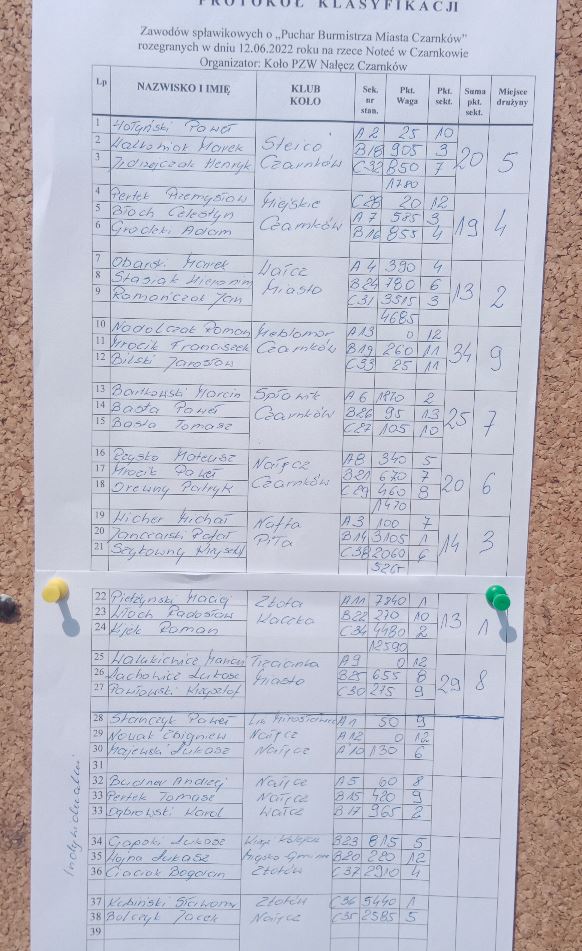 PROTOKÓŁ KLASYFIKACJI
Zawodów spławikowych o „Puchar Burmistrza Miasta Czarnków”
rozegranych w dniu 12.06.2022 roku na rzece Noteć w Czarnkowie
Organizator: Koło PZW Nałęcz Czarnków
Lp NAZWISKO I IMIĘ KLUB KOŁO Sek. nr stan. Pkt. Waga Pkt. sekt. Suma pkt. sekt. Miejsce drużyny
1 Hołyński Paweł Steico A 2 25 10
2 Walkowiak Marek Czarnków B18 905 3 20 5
3 Jędrzejczak Henryk C32 850 7
1780
4 Pertek Przemysław Miejskie C28 20 12
5 Błoch Celestyn Czarnków A 7 585 3 19 4
6 Grodzki Adam B16 855 4
7 Marek Wałcz A 4 390 4
8 Stasiak Hieronim Miasto B24 780 6 13 2
9 Romańczak Jan C31 3515 3
4685
10 Nadolczak Roman Meblomor A13 0 12
11 Mrocik Franciszek Czarnków B19 260 11 34 9
12 Bilski Jarosław C33 25 11
13 Bartkowski Marcin Spławik A 6 2
14 Basta Paweł Czarnków B26 95 13 25 7
15 Basta Tomasz C27 105 10
16 Mateusz Nałęcz A8 340 5
17 Mrocik Paweł Czarnków B21 670 7 20 6
18 Drewny Patryk C29 460 8
1470
19 Wicher Michał Nafta A 3 100 7
20 Janczarski Rafał Piła B14 3105 1 14 3
21 Szytkowny Krzysztof C38 2060 6
5265
22 Maciej Złota A11 7840 1
23 Włoch Radosław Waczka B22 270 10 13 1
24 Kijek Roman C34 4480 2
12590
25 Walukiewicz Marcin Trzcianka A9 0 12
26 Lachowicz Łukasz Miasto B25 655 8 29 8
27 Pawłowski Krzysztof C30 275 9
28 Stańczyk Paweł A 1 50 9
29 Nowak Zbigniew Nałęcz A12 0 12
30 Majewski Łukasz Nałęcz A10 130 6
31
32 Budner Andrzej Nałęcz A 5 60 8
33 Pertek Tomasz Nałęcz B15 420 9
33 Dąbrowski Karol Wałcz B 17 965 2
Indywidualni
34 Gapski Łukasz B23 815 5
35 Hojna Łukasz B20 220 12
36 Ciaciak Bogdan Złotów C37 2910 4
37 Kubiński Sławomir Złotów C36 5440 1
38 Bolczyk Jacek Nałęcz C35 2585 5
39